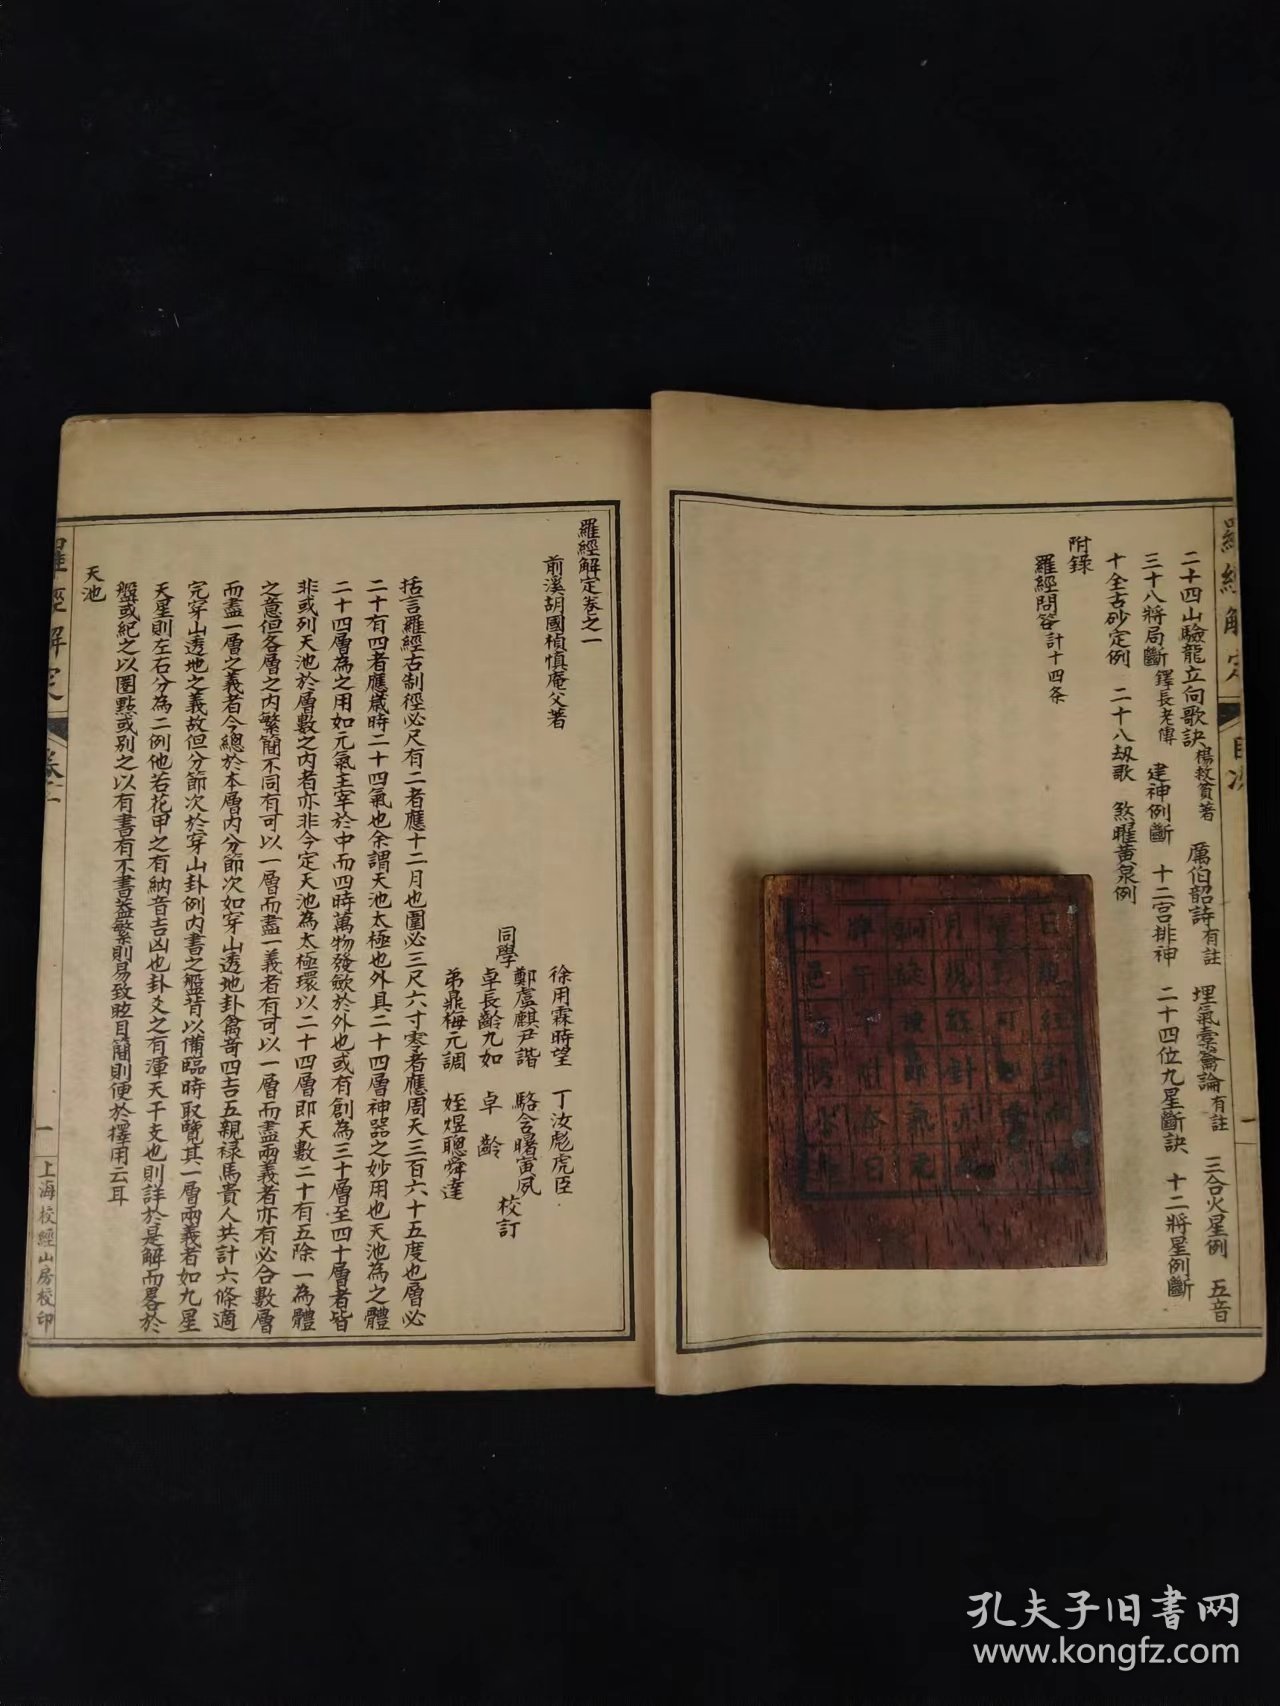 羅經解定
目次
一
二十四山驗龍立向歌訣楊救貧著 厲伯韶詩有註 埋氣橐籥論有註 三合火星例 五音
三十八將局斷鐸長老傳 建神例斷 十二宮排神 二十四位九星斷訣 十二將星例斷
十全古砂定例 二十八刼歌 煞曜黃泉例
附錄
羅經問答計十四条
羅經解定卷之一
前溪胡國楨慎庵父著
徐用霖時望 丁汝彪虎臣
同學 鄭盧麒尹諧 駱含曙寅夙 校訂
卓長齡九如 卓 齡
弟鼐梅元調 姪煜聰舜達
括言羅經古制徑必尺有二者應十二月也圍必三尺六寸零者應周天三百六十五度也層必
二十有四者應歲時二十四氣也余謂天池太極也外具二十四層神器之妙用也天池為之體
二十四層為之用如元氣主宰於中而四時萬物發歛於外也或有創為三十層至四十層者皆
非或列天池於層數之內者亦非今定天池為太極環以二十四層即天數二十有五除一為體
之意但各層之內繁簡不同有可以一層而盡一義者有可以一層而盡兩義者亦有必合數層
而盡一層之義者今總於本層內分節次如穿山透地卦禽奇四吉五親禄馬貴人共計六條適
完穿山透地之義故但分節次於穿山卦例內書之盤背以備臨時取覽其一層兩義者如九星
天星則左右分為二例他若花甲之有納音吉凶也卦爻之有渾天干支也則詳於是解而畧於
盤或紀之以圈點或别之以有書有不書蓋繁則易致眩目簡則便於擇用云耳
天池
羅經解定
卷一
一
上海校經山房校印
孔夫子旧书网
www.kongfz.com